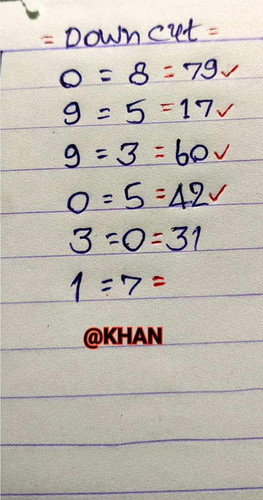 = Down Cut =
0 = 8 = 79 ✓
9 = 5 = 17 ✓
9 = 3 = 60 ✓
0 = 5 = 42 ✓
3 = 0 = 31
1 = 7 =
@KHAN